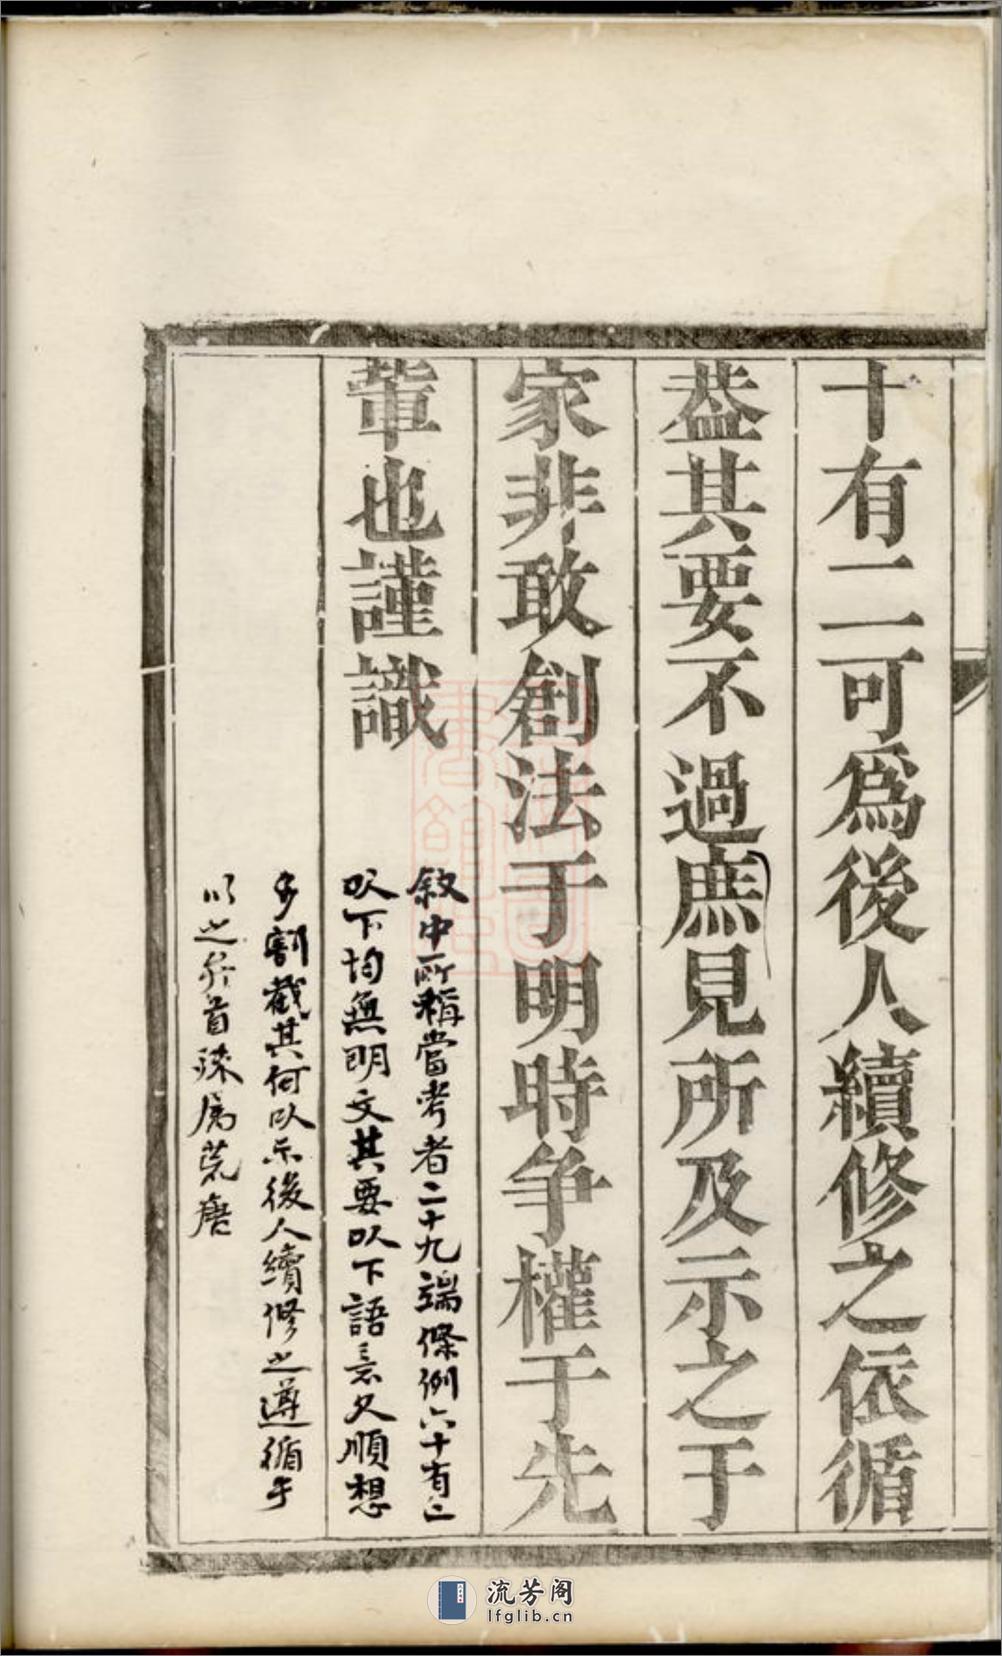 十有二可為後人續修之依循
葢其要不過庶見所及示之于
家非敢創法于明時爭權于先
輩也謹識
敘中所稱當考者二十九端條例六十有二
以下均無明文其要以下語意欠順想
多割截其何以示後人續修之遵循乎
以之弁首殊屬荒唐
流芳阁
lfglib.cn